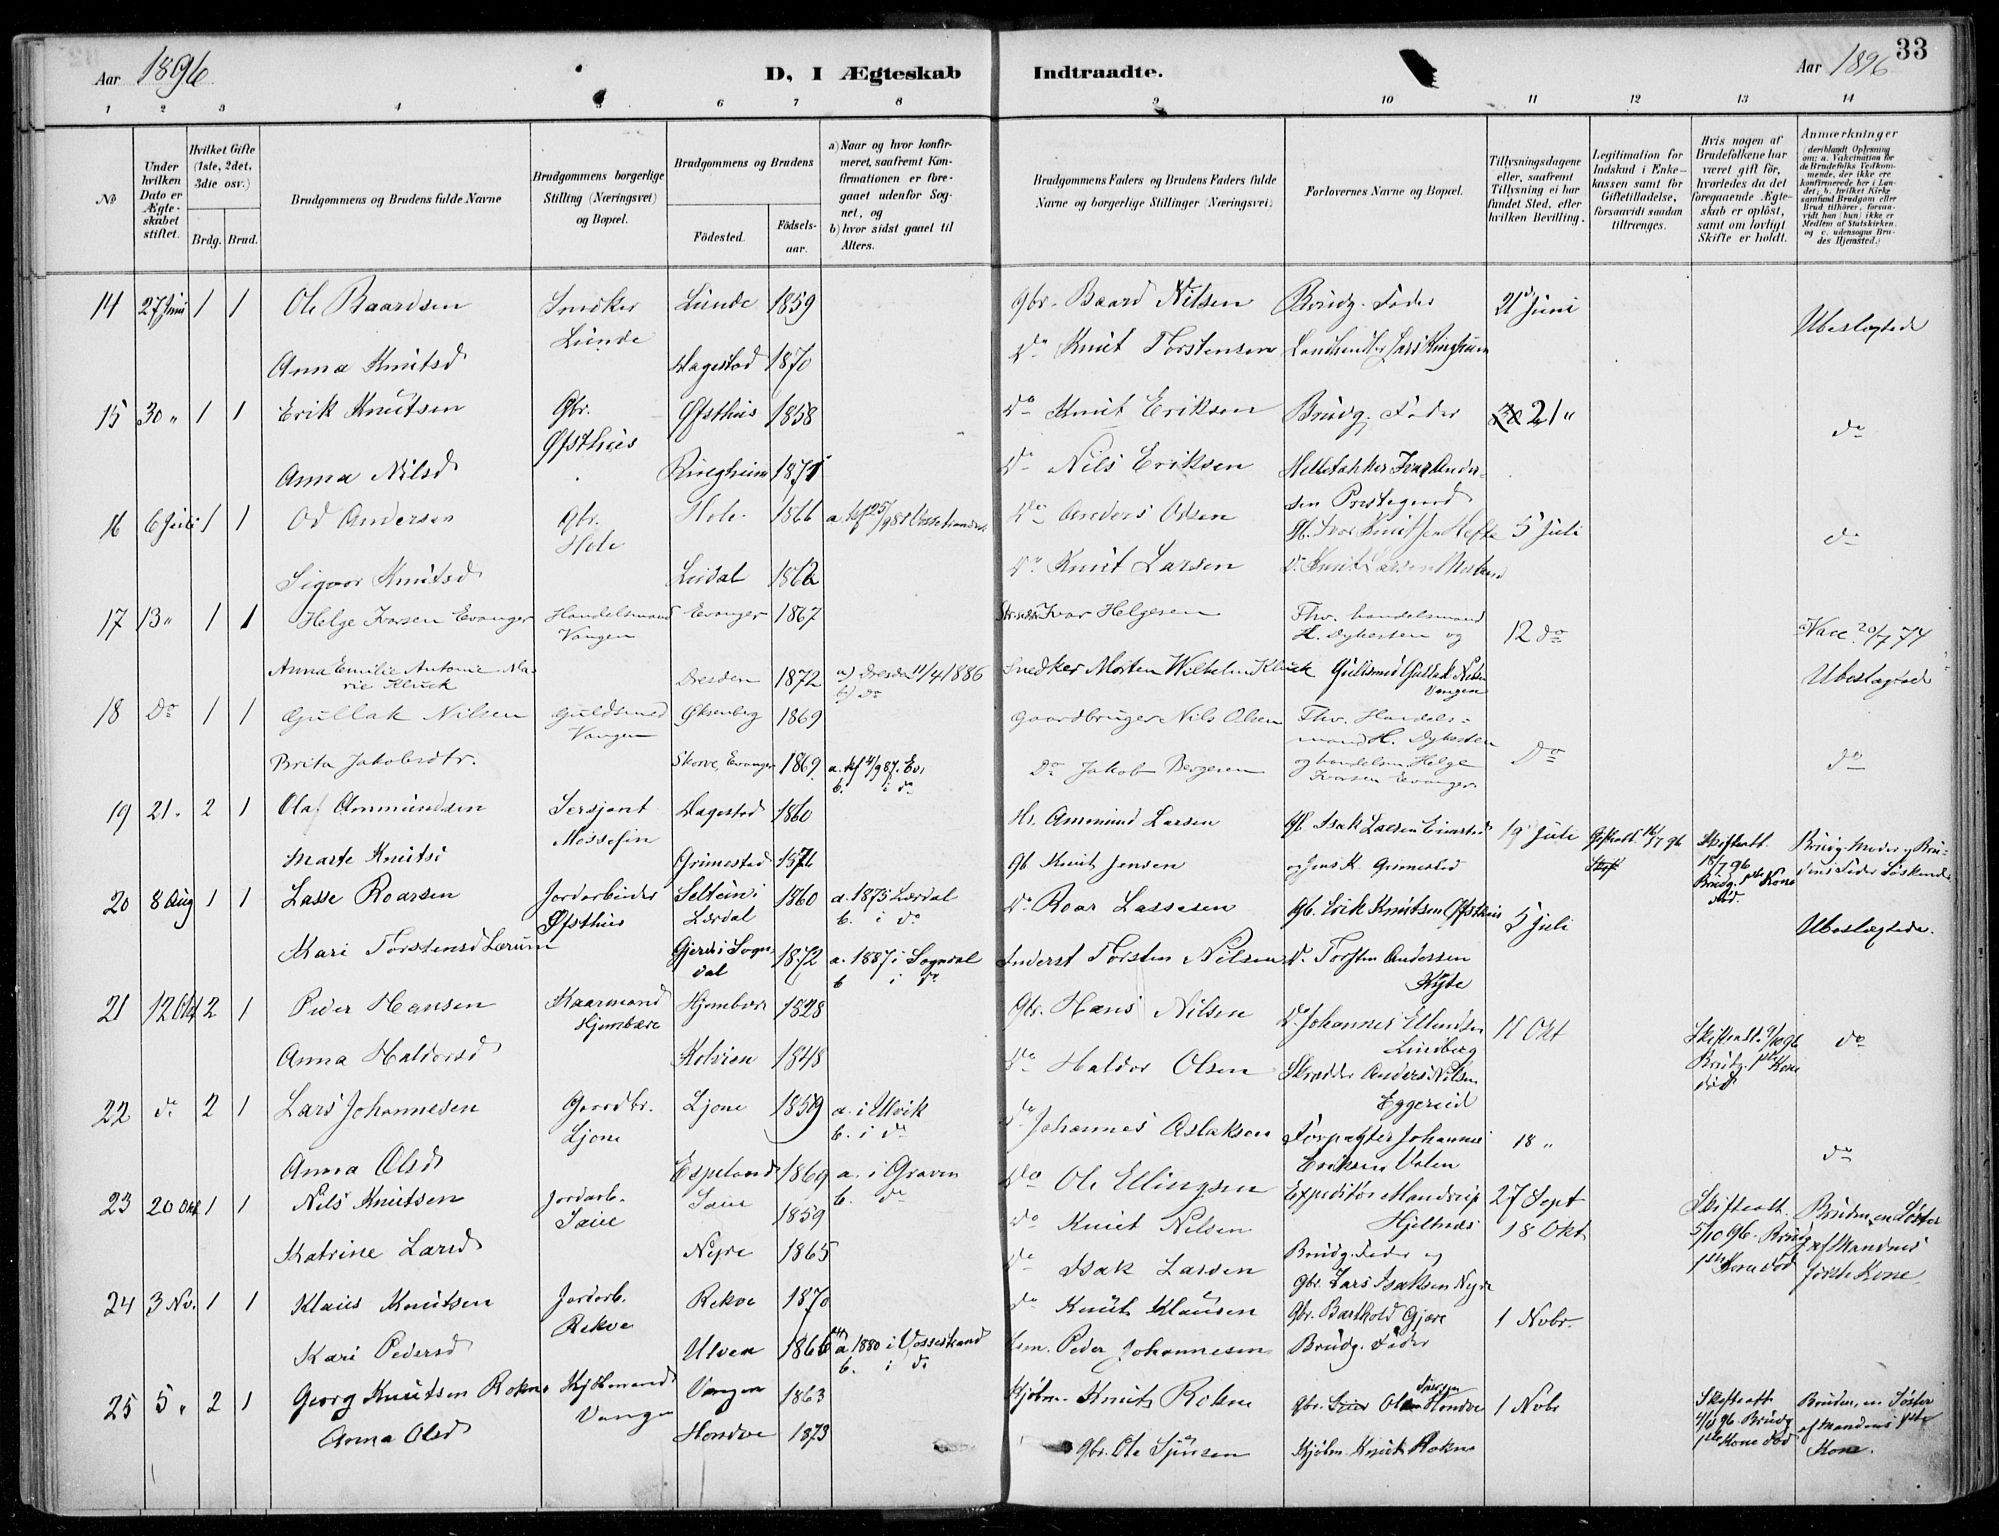 33
Aar 1896
D, I Ægteskab Indtraadte.
Aar 1896
1 2 3 4 5 6 7 8 9 10 11 12 13 14
№
Under hvilken Dato er Ægteskabet stiftet.
Hvilket Gifte (1ste, 2det, 3die osv.)
Brdg. Brud.
Brudgommens og Brudens fulde Navne
Brudgommens borgerlige Stilling (Næringsvei) og Bopæl.
Brudgommens og Brudens
Fødested.
Fødselsaar.
a) Naar og hvor konfirmeret, saafremt Konfirmationen er foregaaet udenfor Sognet, og
b) hvor sidst gaaet til Alters.
Brudgommens Faders og Brudens Faders fulde Navne og borgerlige Stillinger (Næringsvei)
Forlovernes Navne og Bopæl.
Tillysningsdagene eller, saafremt Tillysning ei har fundet Sted, efter hvilken Bevilling.
Legitimation for Indskud i Enkekassen samt for Giftetilladelse, forsaavidt saadan tiltrænges.
Hvis nogen af Brudefolkene har været gift før, hvorledes da det foregaaende Ægteskab er opløst, samt om lovligt Skifte er holdt.
Anmærkninger (deriblandt Oplysning om: a. Vakcination for de Brudefolks Vedkommende, der ikke ere konfirmerede her i Landet; b. hvilket Kirkesamfund Brudgom eller Brud tilhører, forsaavidt han (hun) ikke er Medlem af Statskirken, og c. udensogns Brudes Hjemsted.)
14 27 Juni 1 1 Ole Baardsen Snedker Lunde Lunde 1859 Gbr. Baard Nilsen Brudg. Fader 21 Juni Ubeslægtede
Anna Knutsd Hagestad 1870 Do Knut Torstensen Landhandler Lars Ringheim
15 30 " 1 1 Erik Knutsen Gbr. Øfsthus Øfsthus 1858 Do Knut Eriksen Brudg. Fader 21 " do
Anna Nilsd Ringheim 1871 Do Nils Eriksen Ivar Andersen Prestegaard
16 6 Juli 1 1 Od Andersen Gbr. Hole Hole 1866 Do Anders Odsen Knutsen Hefte 5 Juli do
Sigvor Knutsd Lirdal 1862 Do Knut Larsen Do Knut Larsen
17 13 " 1 1 Helge Ivarsen Evanger Handelsmand Vangen Evanger 1867 Ivar Helgesen Fhv. handelsmand H. Dykesten og 12 do Vacc. 20/7 74
Anna Emilie Antonie Marie Kluck Dresden 1872 a) Dresden 11/4 1886 b) do Snedker Morten Wilhelm Kluck Guldsmed Gullak Nilsen Vangen Ubeslægtede
18 Do 1 1 Gullak Nilsen Guldsmed Vangen Øksenberg 1869 Gaardbruger Nils Olsen Fhv. Handelsmand H. Dykesten Do do
Brita Jakobsdtr. Skorve, Evanger 1869 a. kf 4/9 87. Ev. b. i do Do Jakob Bergesen og handelsm Helge Ivarsen Evanger
19 21 " 2 1 Olaf Ommundsen Sersjant Mossefin Hagestad 1860 Ommund Larsen Gb. Isak Larsen 19 Juli Skifteatt. 18/7 96 Brudg. 1ste Kone død. Brudg. Moder og Brudens Fader Søskende
Marte Knutsd Grimestad 1876 Gb Knut Jensen og Jens K. Grimestad
20 8 Aug 1 1 Lasse Roarsen Jordarbeider Øfsthus Seltun i Lærdal 1860 a. 1875 Lærdal b. i do Do Roar Lassesen Gb. Erik Knutsen Øfsthus 5 Juli Ubeslægtede.
Kari Torstensd Lærum Gjerde i Sogndal 1872 a. 1887 i Sogndal b i do Inderst Torsten Nilsen Do Torsten Andersen Kyte
21 12 Okt 2 1 Peder Hansen Kaarmand Gjernbære 1828 Gbr. Hans Nilsen Do Johannes Ellendsen Lindberg 11 Okt Skifteatt. 9/10 96 Brudg. 1ste Kone død do
Anna Haldorsd Kolvien 1848 Do Haldor Olsen Skrædder Anders Nilsen Eggereid
22 do 2 1 Lars Johannesen Gaardbr. Ljone Ljone 1859 a. i Ulvik b. i do Do Johannes Aslaksen Forpagter Johannes Eriksen Valen 18 " do
Anna Olsd Espeland 1869 a. i Graven b. do Do Ole Ellingsen Expeditør Mandrup Hjeltnes
23 20 Okt 1 1 Nils Knutsen Jordarb. Saue Saue 1859 Do Knut Nilsen Brudg. Fader og 27 Sept 18 Okt Skifteatt. 5/10 96. Brudg 1ste Kone død Bruden en Søster af Mandens første Kone.
Katrine Larsd Nyre 1865 Do Isak Larsen Gbr. Lars Isaksen Nyre
24 3 Nv. 1 1 Klaus Knutsen Jordarb. Rekve Rekve 1870 Do Knut Klausen Gbr. Barthold Gjære 1 Nvbr.
Kari Pedersd Ulven 1866 a 1880 i Vossestrand b. i do Peder Johannesen Brudg. Fader
25 5 " 2 1 Georg Knutsen Rokne Vangen Vangen 1863 Kjøbm. Knut Rokne Gbr. Hondve 1 Nvbr Skifteatt 4/11 96 Brudg 1ste Kone død Bruden, en Søster af Mandens 1ste Kone.
Anna Olsd Hondve 1873 Gbr. Ole Sjursen Kjøbm. Knut Rokne